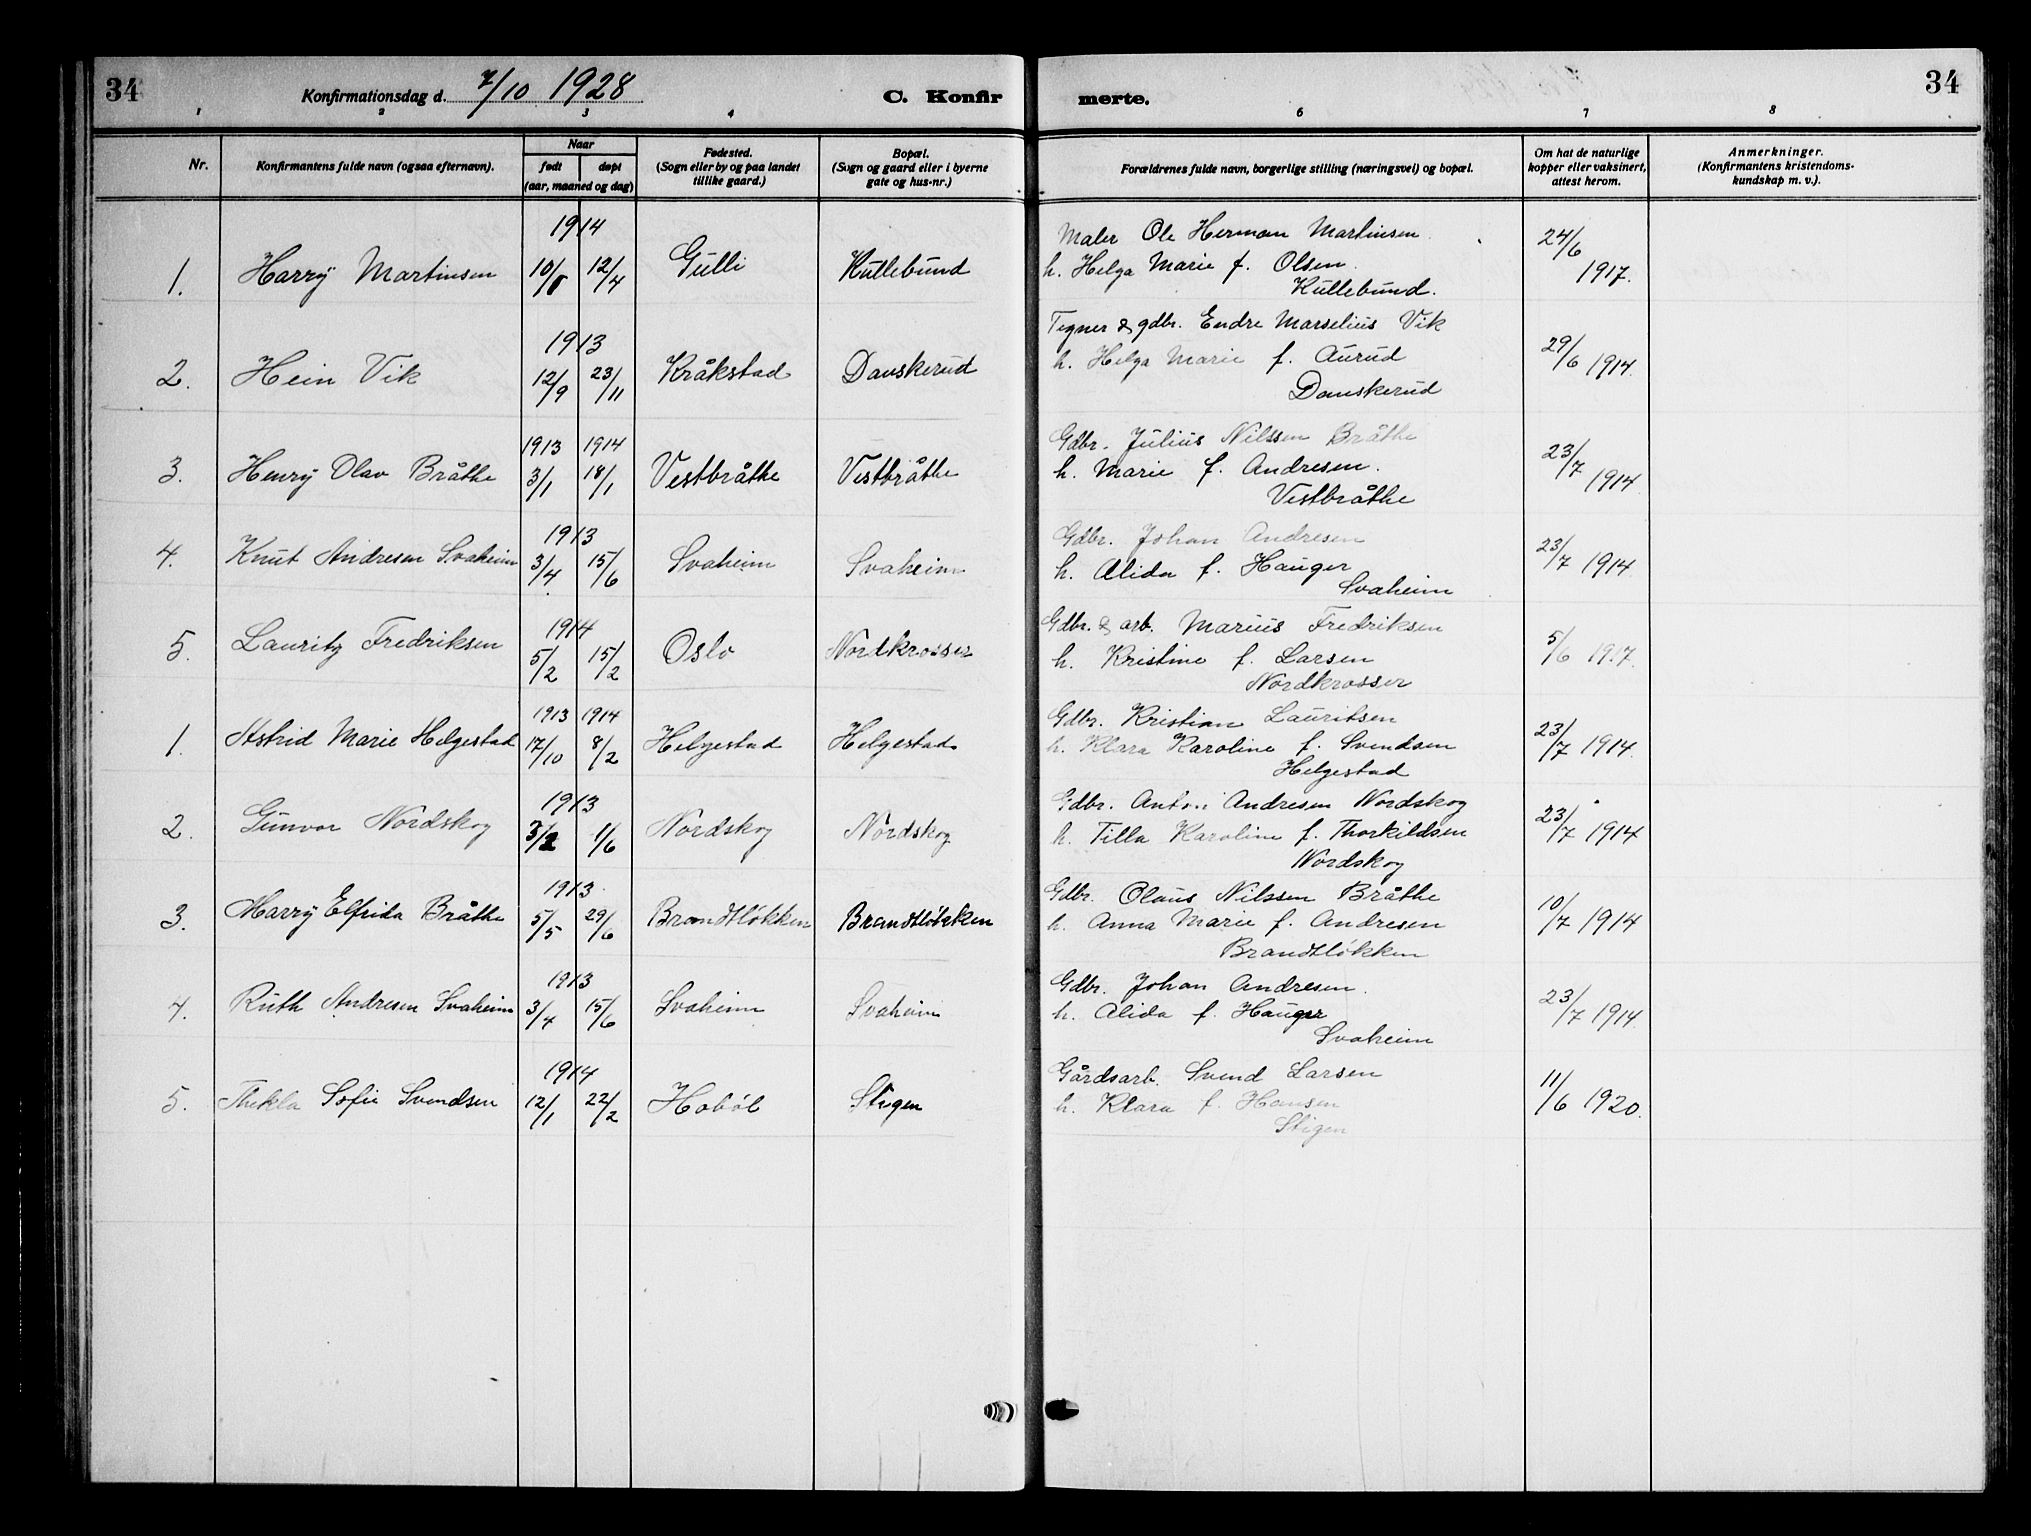 34 Konfirmationsdag d. 7/10 1928 C. Konfir merte. 34
1 2 3 4 6 7 8
Nr.
Konfirmantens fulde navn (ogsaa efternavn).
Naar
født døpt
(aar, maaned og dag)
Fødested.
(Sogn eller by og paa landet
tillike gaard.)
Bopæl.
(Sogn og gaard eller i byerne
gate og hus-nr.)
Forældrenes fulde navn, borgerlige stilling (næringsvei) og bopæl.
Om hat de naturlige
kopper eller vaksinert,
attest herom.
Anmerkninger.
(Konfirmantens kristendoms-
kundskap m. v.).
1914
Maler Ole Herman Martinsen
1. Harry Martinsen 12/4 Gulli Kullebund h. Helga Marie f. Olsen 24/6 1917.
Kullebund.
Tegner & gdbr. Endre Marselius Vik
1913
2. Hein Vik 12/9 23/11 Kråkstad Danskerud h. Helga Marie f. Aurud 29/6 1914.
Danskerud
1913 1914 Gdbr. Julius Nilssen Bråthe
3. Henry Olav Bråthe 3/1 18/1 Vestbråthe Vestbråthe h. Marie f. Andresen. 23/7 1914
Vestbråthe
1913 Gdbr. Johan Andresen
4. Knut Andresen Svaheim 3/4 15/6 Svaheim Svaheim h. Alida f. Hauger 23/7 1914
Svaheim
1914 Gdbr. & arb. Marius Fredriksen
5. Lauritz Fredriksen 5/2 15/2 Oslo Nordkrosser h. Kristine f. Larsen 5/6 1917.
Nordkrosser
1913 1914 Gdbr. Kristian Lauritsen
1. Astrid Marie Helgestad 17/10 8/2 Helgestad Helgestad h. Klara Karoline f. Svendsen 23/7 1914.
Helgestad
1913 Gdbr. Anton Andresen Nordskog
2. Gunvor Nordskog 1/6 Nordskog Nordskog h. Tilla Karoline f. Thorkildsen 23/7 1914
Nordskog
1913 Gdbr. Olaus Nilssen Bråthe
3. Harry Elfrida Bråthe 5/5 29/6 Brandtløkken Brandtløkken h. Anna Marie f. Andresen 10/7 1914
Brandtløkken
1913 Gdbr. Johan Andresen.
4. Ruth Andresen Svaheim 3/4 15/6 Svaheim Svaheim h. Alida f. Hauger 23/7 1914.
Svaheim
1914 Gårdsarb. Svend Larsen
5. Thekla Sofie Svendsen 12/1 22/2 Hobøl Stigen h. Klara f. Hansen 11/6 1920.
Stigen